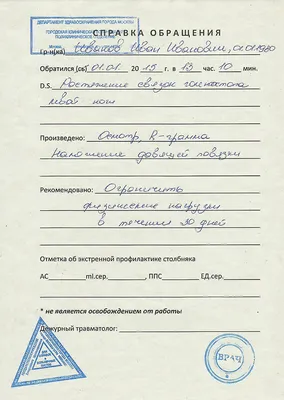 СПРАВКА ОБРАЩЕНИЯ
ДЕПАРТАМЕНТ ЗДРАВООХРАНЕНИЯ ГОРОДА МОСКВЫ
ГОРОДСКАЯ КЛИНИЧЕСКАЯ
Гр-н(ка) Иванов Иван Иванович, 01.01.1980
Обратился (ась) 01.01. 2015 г. в 13 час. 10 мин.
D.S. Растяжение связок голеностопа
левой ноги
Произведено: Осмотр, R-грамма
Наложение давящей повязки
Рекомендовано: Ограничить
физические нагрузки
в течении 30 дней
Отметка об экстренной профилактике столбняка
АС ml.сер. , ППС ЕД.сер.
* не является освобождением от работы
Дежурный травматолог:
ВРАЧ